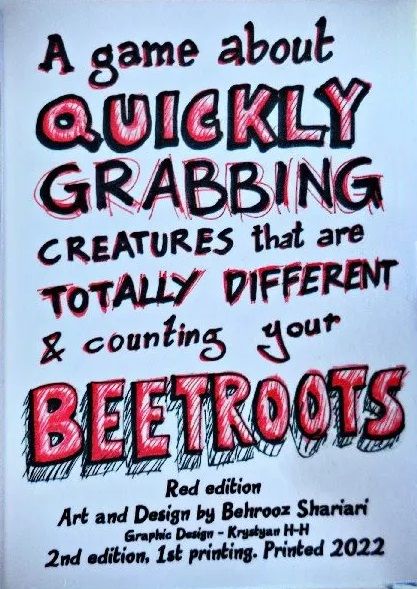 A game about
QUICKLY
GRABBING
CREATURES that are
TOTALLY DIFFERENT
& counting your
BEETROOTS
Red edition
Art and Design by Behrooz Shariari
Graphic Design - Krystyan H-H
2nd edition, 1st printing. Printed 2022